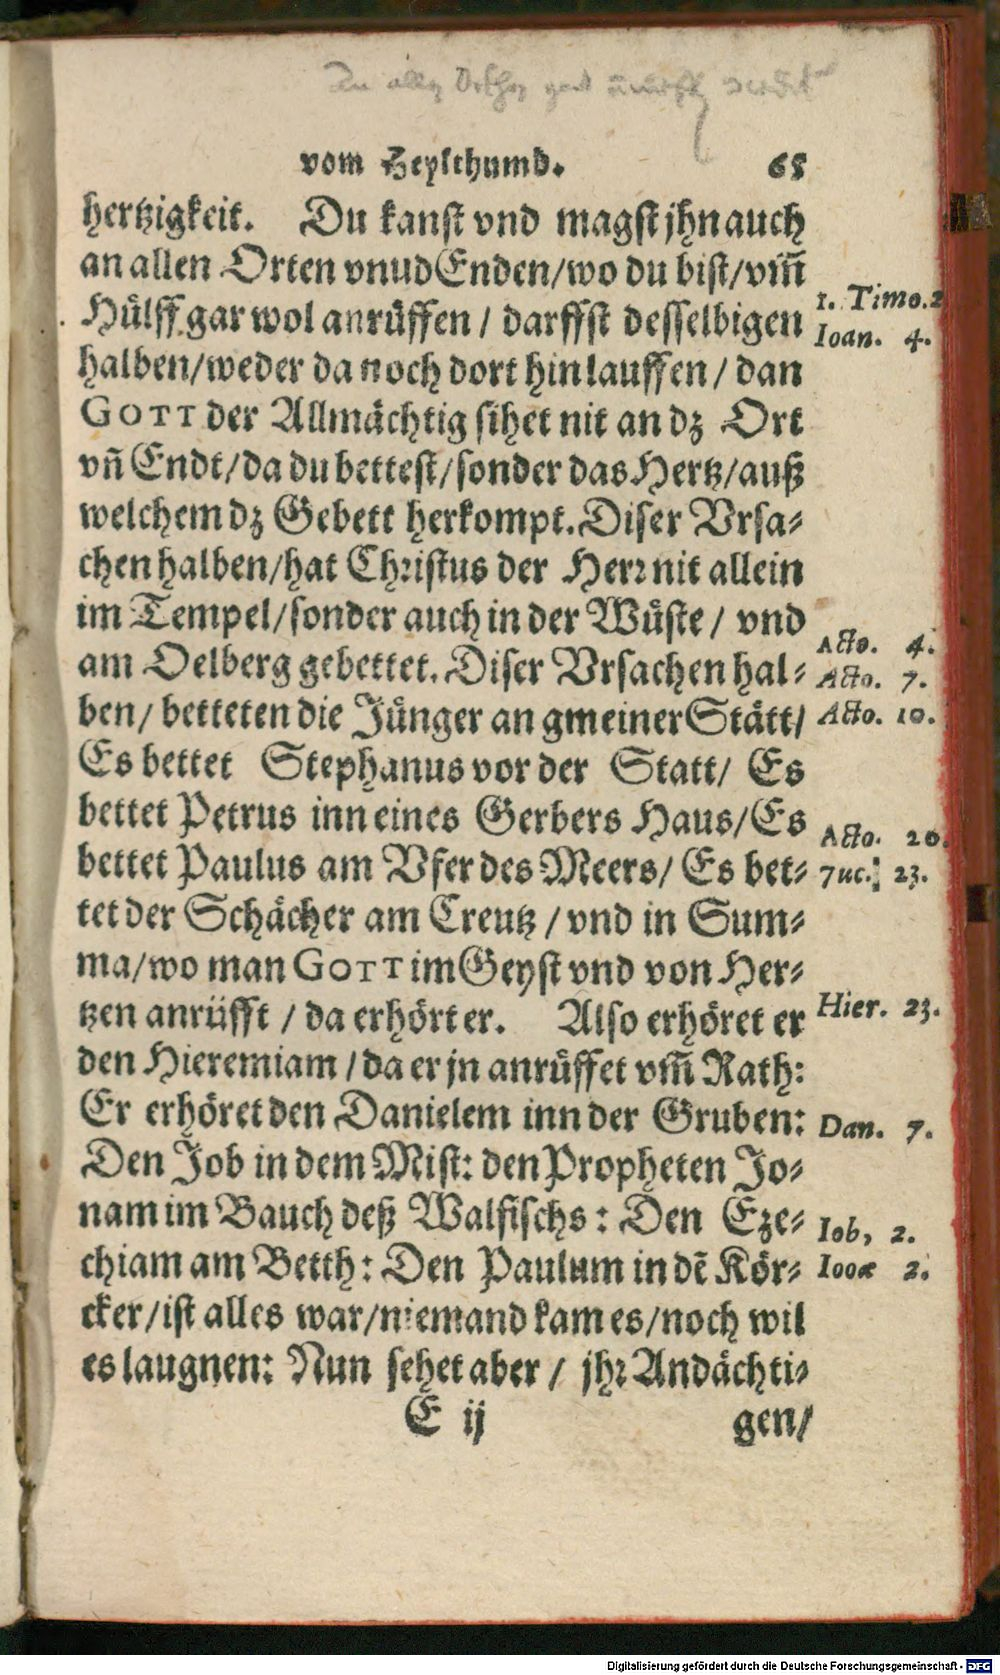 vom Heylthumb. 65
hertzigkeit. Du kanst vnd magst jhn auch
an allen Orten vnud Enden/wo du bist/vm̃
Hülff gar wol anrüffen / darffst desselbigen
halben/weder da noch dort hinlauffen / dan
GOTT der Allmächtig sihet nit an dz Ort
vñ Endt/da du bettest/sonder das Hertz/auß
welchem dz Gebett herkompt. Diser Vrsa-
chen halben/hat Christus der Herr nit allein
im Tempel/sonder auch in der Wüste / vnd
am Oelberg gebettet. Diser Vrsachen hal-
ben/ betteten die Jünger an gmeiner Stätt/
Es bettet Stephanus vor der Statt/ Es
bettet Petrus inn eines Gerbers Haus/Es
bettet Paulus am Vfer des Meers/ Es bet-
tet der Schächer am Creutz / vnd in Sum-
ma/wo man GOTT im Geyst vnd von Her-
tzen anrüfft / da erhört er. Also erhöret er
den Hieremiam / da er jn anrüffet vm̃ Rath:
Er erhöret den Danielem inn der Gruben:
Den Job in dem Mist: den Propheten Jo-
nam im Bauch deß Walfischs : Den Eze-
chiam am Betth : Den Paulum in dẽ Kör-
cker/ist alles war/niemand kam es/noch wil
es laugnen: Nun sehet aber / jhr Andächti-
E ij gen/
1. Timo. 2
Ioan. 4.
Acto. 4.
Acto. 7.
Acto. 10.
Acto. 20.
Luc. 23.
Hier. 23.
Dan. 7.
Iob, 2.
Ionæ 2.
Digitalisierung gefördert durch die Deutsche Forschungsgemeinschaft - DFG